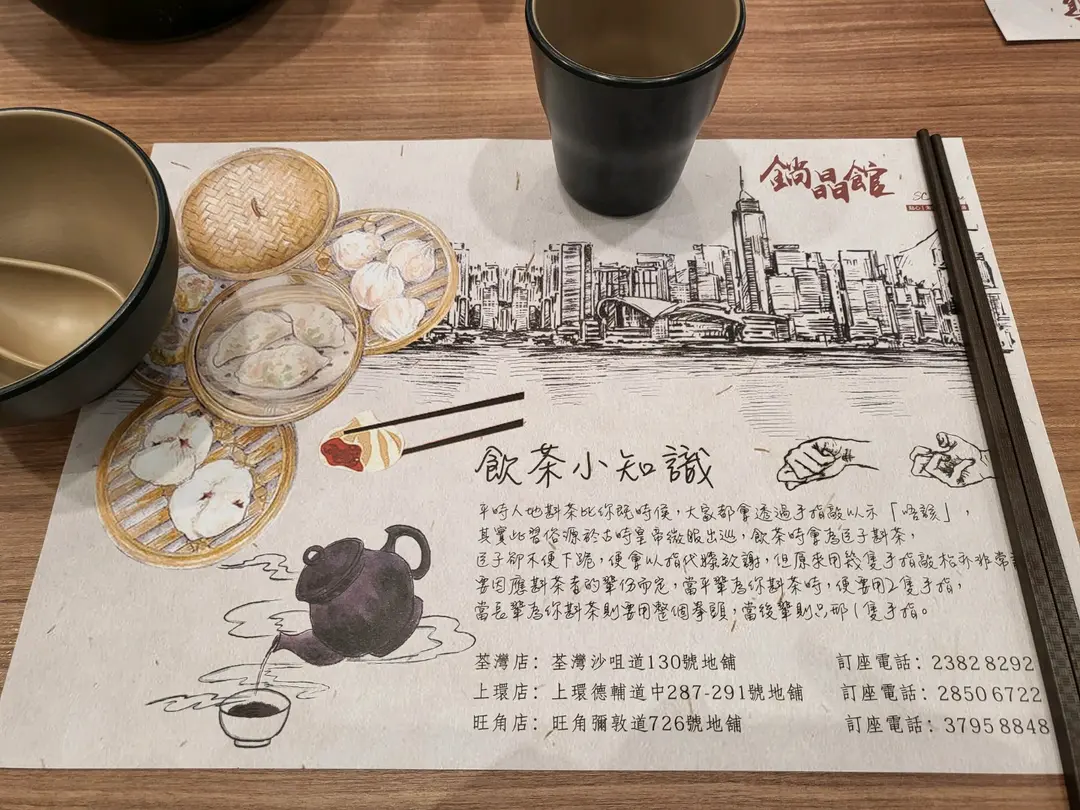 鐺晶館
飲茶小知識
平時人地斟茶比你既時侯，大家都會透過手指敲以示「唔該」，
其實此習俗源於古時皇帝微服出巡，飲茶時會為臣子斟茶，
臣子卻不便下跪，便會以指代膝致謝，但原來用幾隻手指敲枱亦非常
要因應斟茶者的輩份而定，當平輩為你斟茶時，便要用2隻手指，
當長輩為你斟茶則要用整個拳頭，當後輩則只那1隻手指。
荃灣店：荃灣沙咀道130號地舖 訂座電話：2382 8292
上環店：上環德輔道中287-291號地舖 訂座電話：2850 6722
旺角店：旺角彌敦道726號地舖 訂座電話：3795 8848